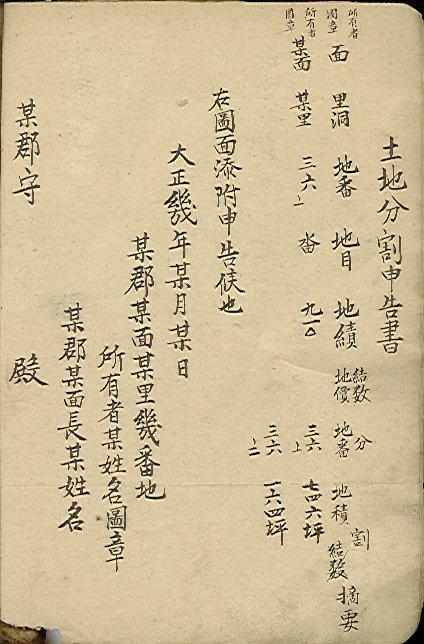 土地分割申告書
所有者圖章 面 里洞 地番 地目 地績 結数地價 分割 地番 地積 結数 摘要
所有者圖章 某面 某里 三六ノ一 畓 九一〇 三六ノ上 七四六坪
三六ノ二 一六四坪
右圖面添附申告候也
大正幾年某月某日
某郡某面某里幾番地
所有者某姓名圖章
某郡某面長某姓名
某郡守 殿